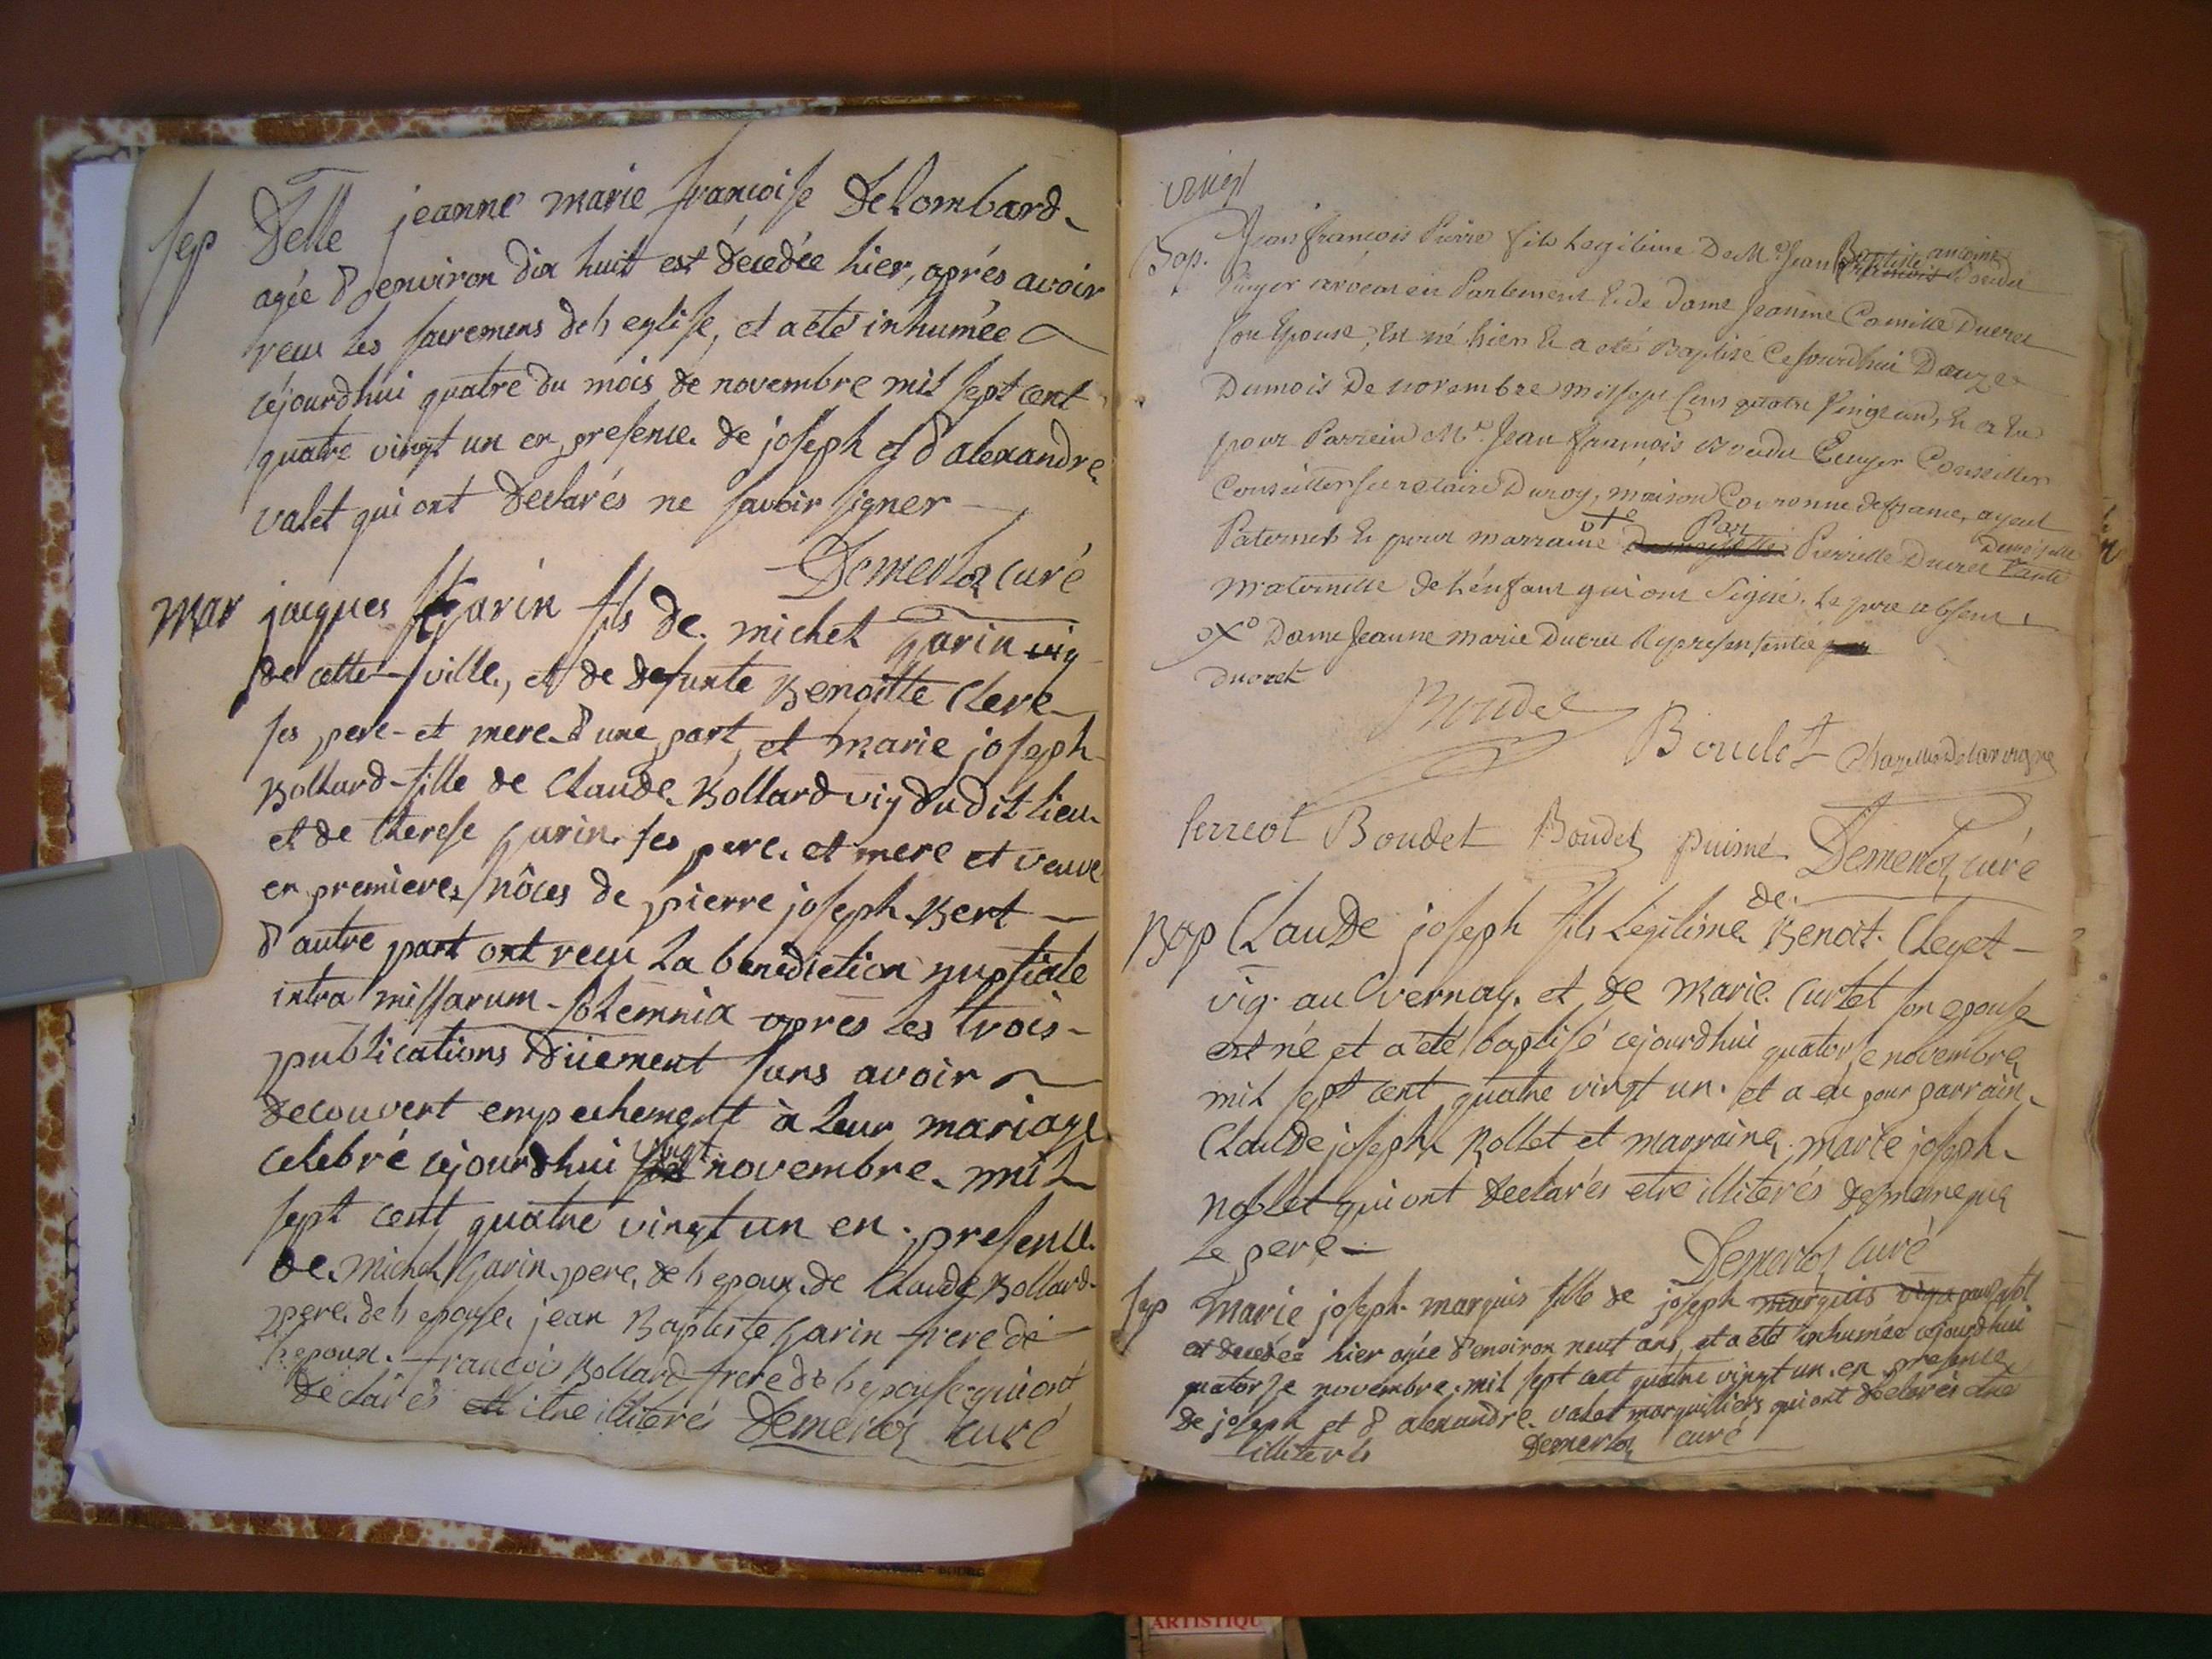 sep Delle jeanne marie françoise Delombard
agée d'environ dix huit est décedée hier, aprés avoir
reçu les sacremens de l'eglise, et a été inhumée
cejourdhui quatre du mois de novembre mil sept cent
quatre vingt un en presence de joseph et d'alexandre
valet qui ont declarés ne savoir signer
Demerloz curé
Mar jacques garin fils de michel garin vig
de cette ville, et de defunte Benoitte Clere
ses pere et mere d'une part, et marie joseph
Bollard fille de Claude Bollard vig dudit lieu
et de therese garin ses pere et mere et veuve
en premieres nôces de pierre joseph Bert
d'autre part ont reçu la benediction nuptiale
intra missarum solemnia aprés les trois
publications düement sans avoir
decouvert empechement à leur mariage
celebré cejourdhui vingt novembre mil
sept cent quatre vingt un en presence
de michel garin pere de l'epoux de Claude Bollard
pere de l'epouse jean Baptiste garin frere de
l'epoux françois Bollard frere de l'epouse qui ont
declarés etre illiterés Demerloz curé
vingt
Bap. Jean françois Pierre fils Legitime De Mr. Jean Baptiste antoine françois Boudet
Ecuyer avocat en Parlement & de Dame Jeanne Camille Ducret
son Epouse, Est né hier & a eté Baptisé Cejourdhui Douze
Dumois De novembre mil sept Cens quatre vingt un, & a Eu
pour Parrein Mr. Jean francois Boudet Ecuyer Conseiller
Conseiller secretaire Du roy, maison Couronne de france, ayeul
Paternel & pour marraine o+o Demoiselle Par Pierrette Ducret Demoiselle tante
maternelle de L'enfant qui ont Signé. Le pere absent
oXo Dame Jeanne Marie Ducret Representée par
Ducret
Boudet
Boudet
Perreot Boudet Boudet puisné Demerloz curé
Bap Claude joseph fils Legitime de Benoit Cleyet
vig. au vernay et de Marie Curtet son epouse
est né et a été baptisé cejourdhui quatorse novembre
mil sept cent quatre vingt un. et a eu pour parrain
Claude joseph Rollet et marraine marie joseph
noblet qui ont declarés etre illiterés de meme que
le pere
Demerloz curé
sep Marie joseph marquis fille de joseph marquis
est decedée hier agée d'environ neuf ans, et a été inhumée cejourdhui
quatorse novembre mil sept cent quatre vingt un en presence
de joseph et d'alexandre valet marguilliers qui ont declarés etre
illiterés Demerloz curé
ARTISTIQU